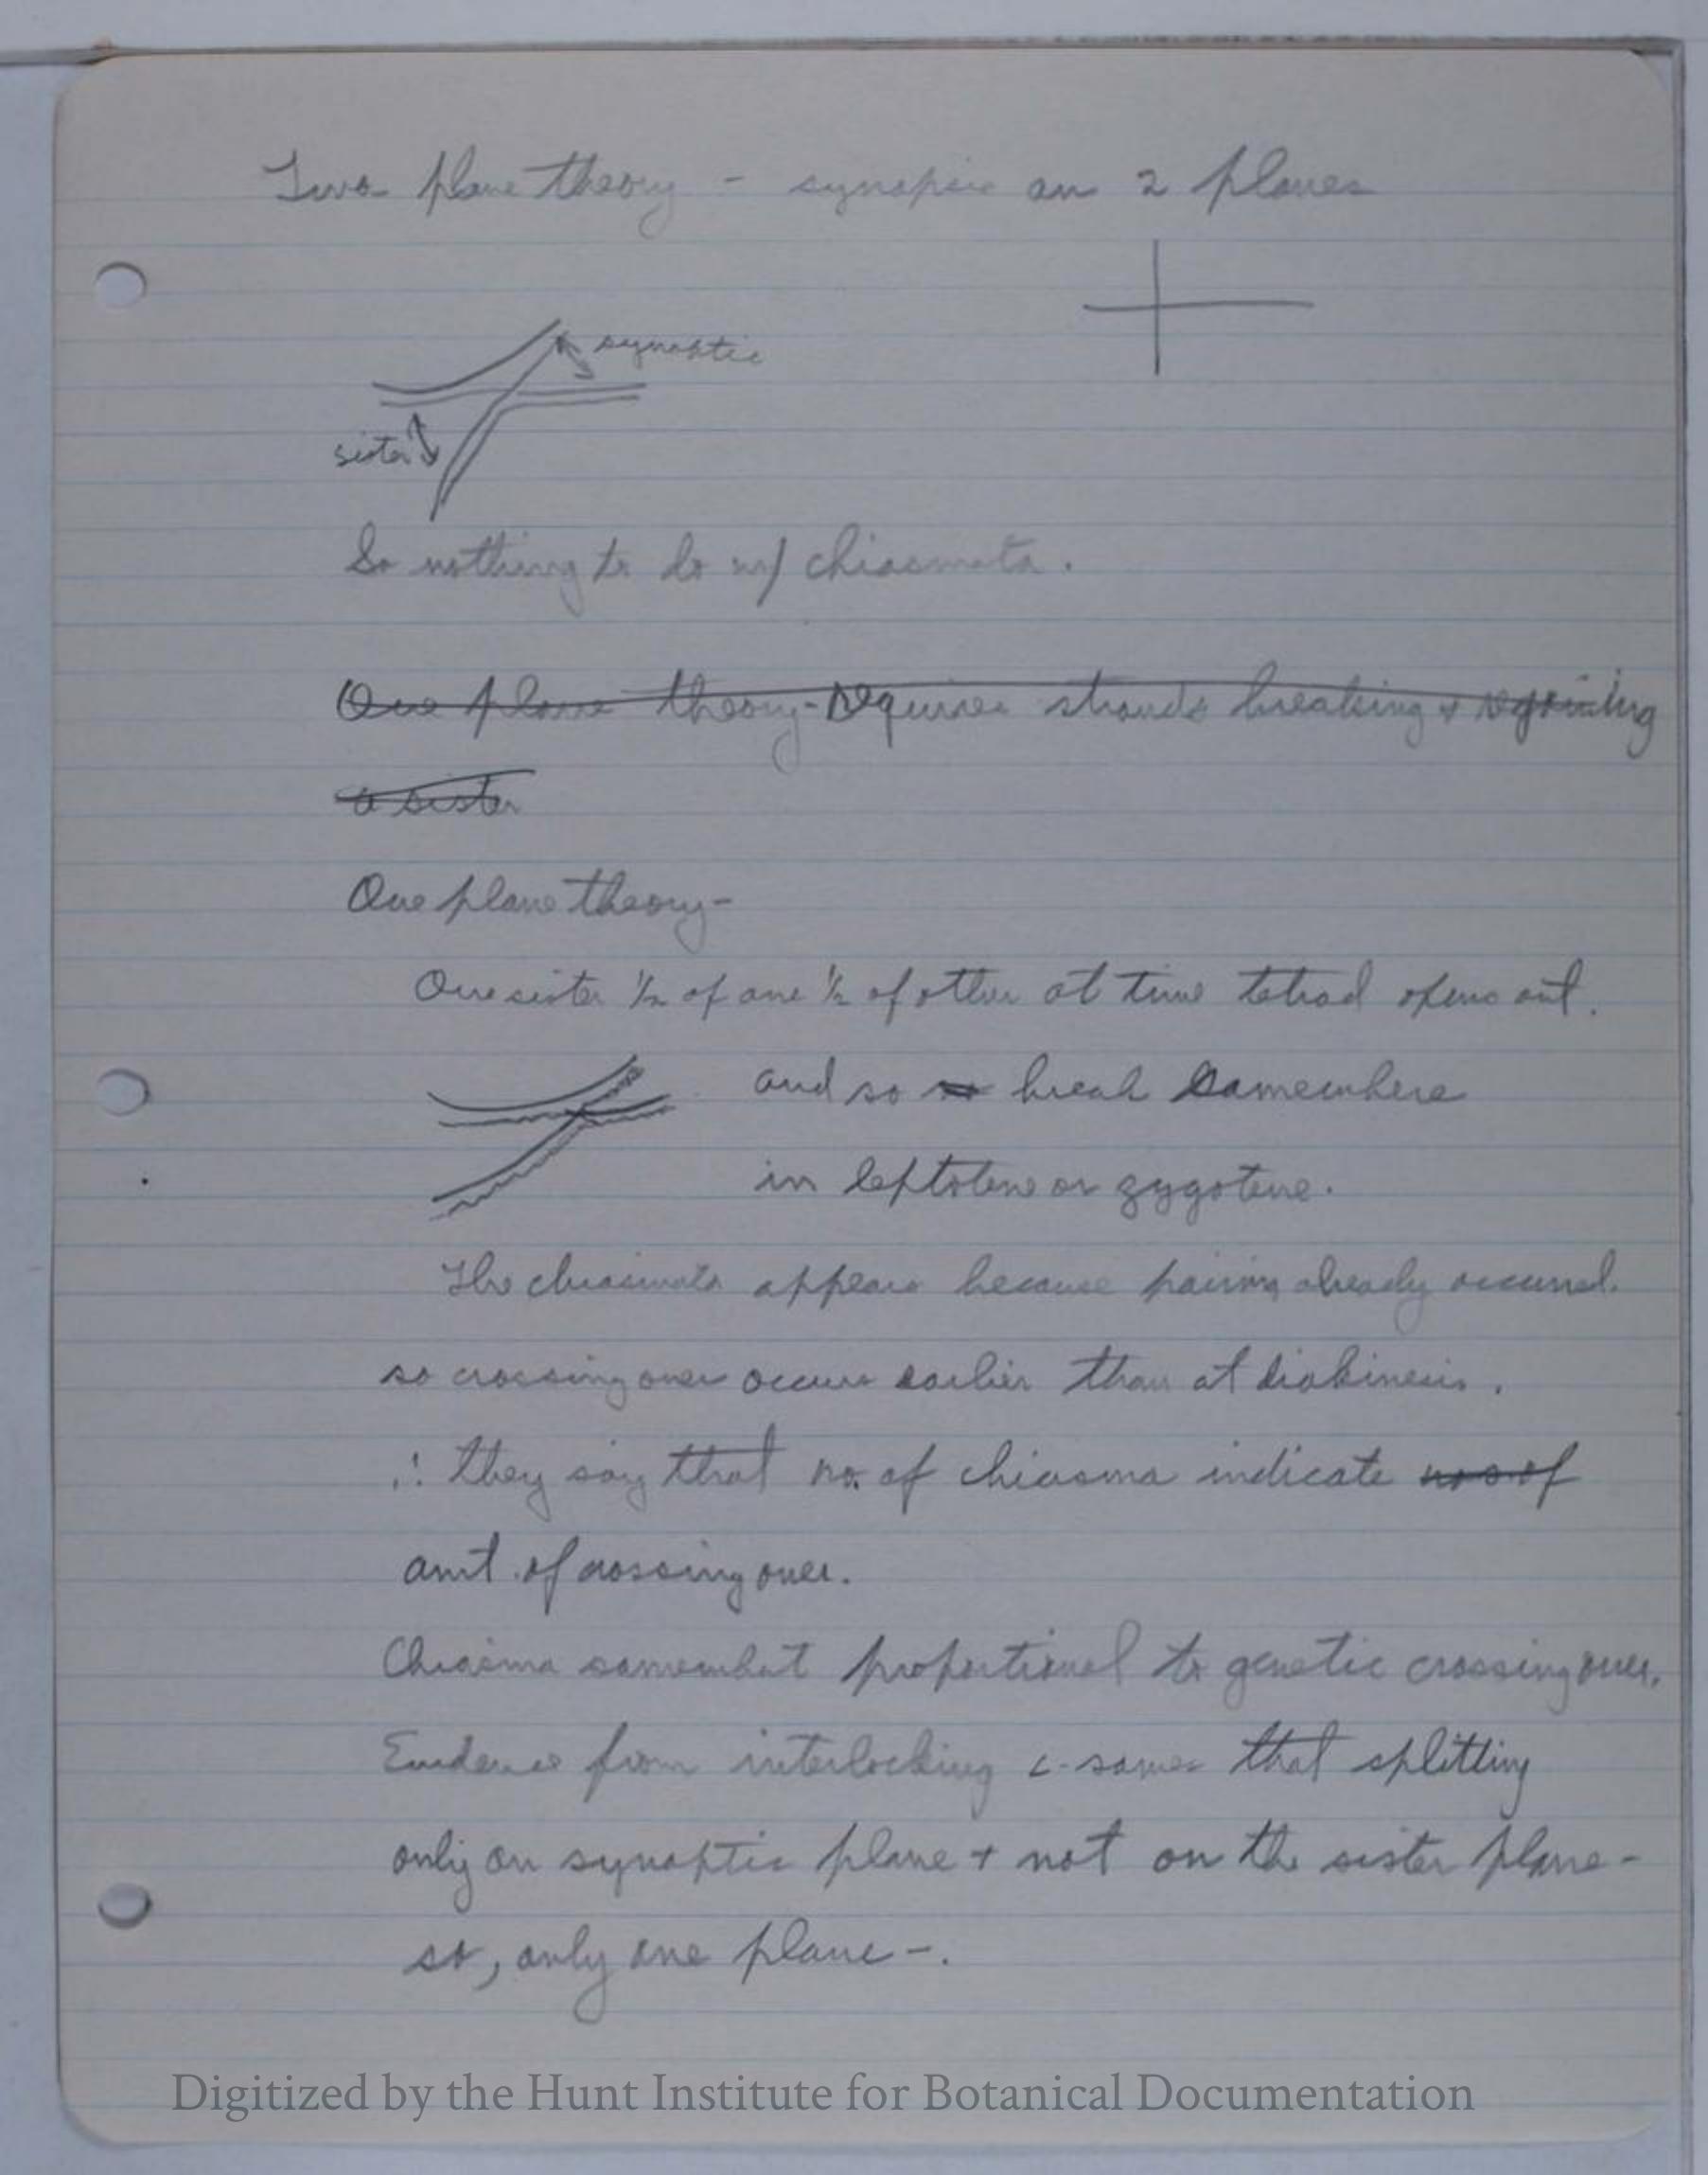 Two plane theory - synapsis on 2 planes
synaptic
sister
So nothing to do w/ chiasmata.
One plane theory - Requires strands breaking & rejoining
a sister
One plane theory -
One sister ½ of one ½ of other at time tetrad opens out.
and so break somewhere
in leptotene or zygotene.
The chiasmata appears because pairing already occurred.
so crossing over occurs earlier than at diakinesis.
∴ they say that no. of chiasma indicate no. of
amt. of crossing over.
Chiasma somewhat proportional to genetic crossing over.
Evidence from interlocking c-somes that splitting
only on synaptic plane + not on the sister plane -
so, only one plane -.
Digitized by the Hunt Institute for Botanical Documentation